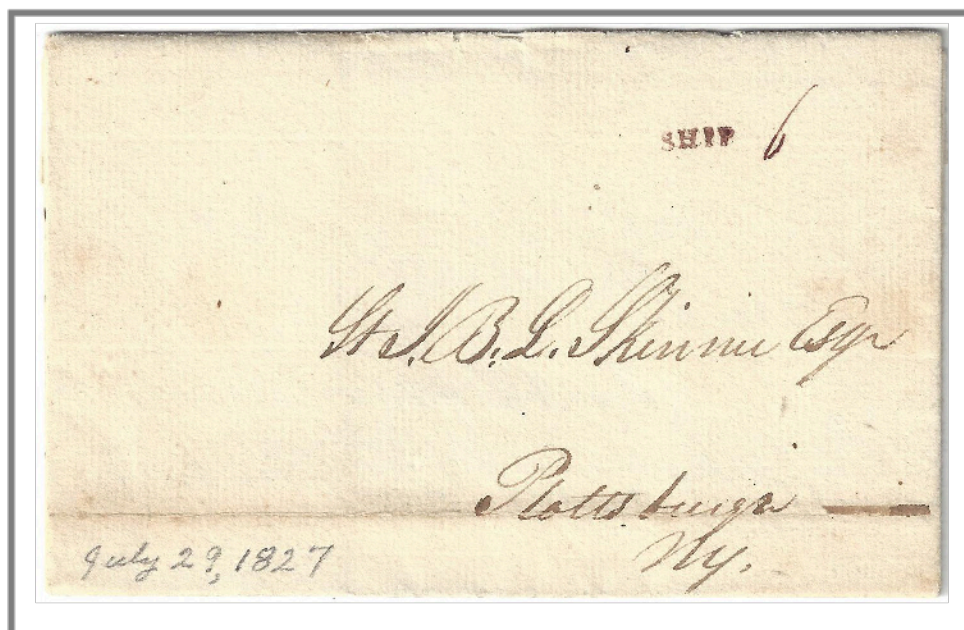 SHIP 6
St. J. B. L. Skinner Esqr
Plattsburgh
Ny.
July 29, 1827